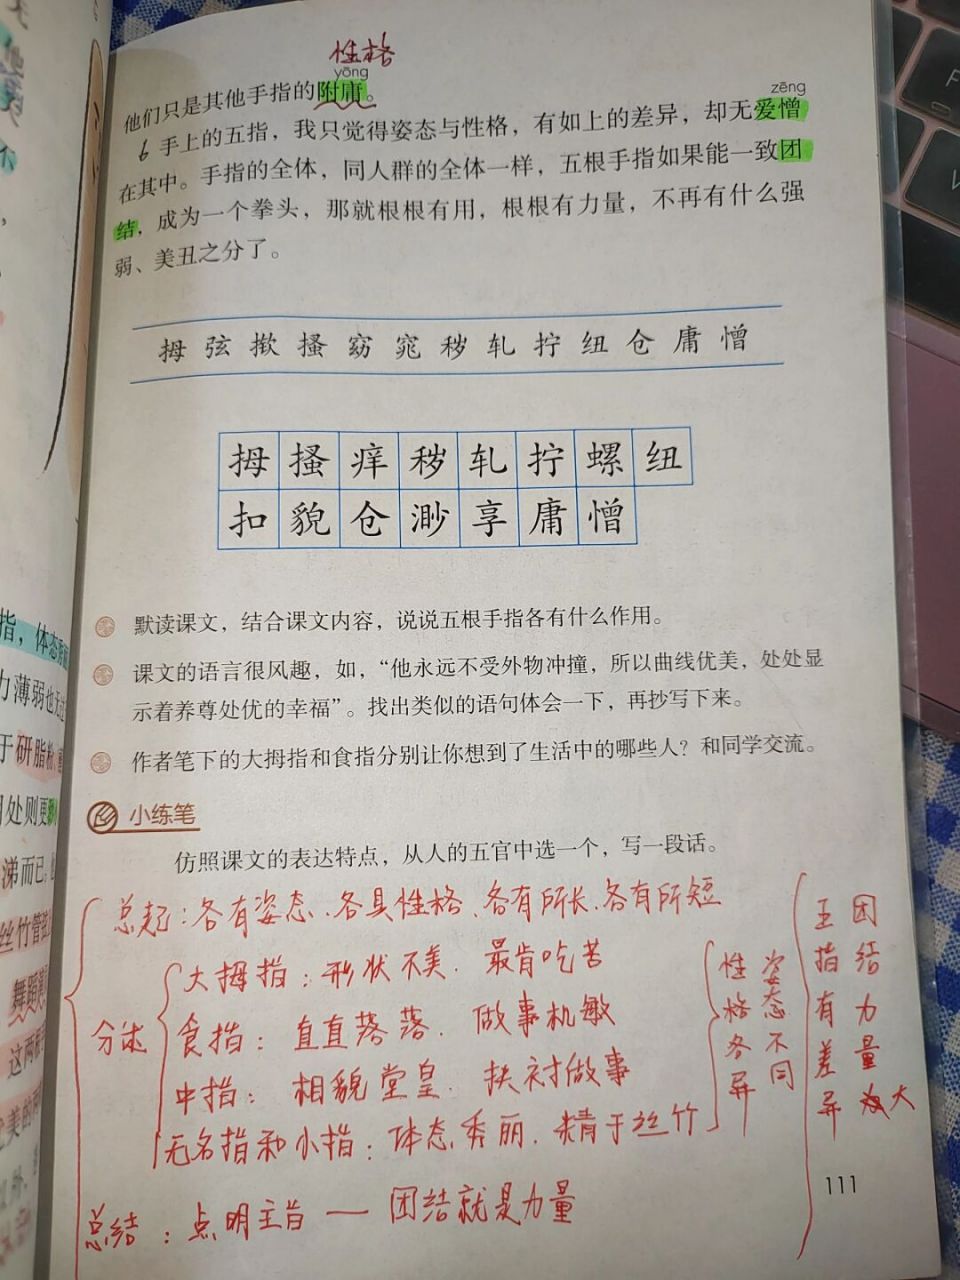 性格
yōng
他们只是其他手指的附庸。
zēng
6 手上的五指，我只觉得姿态与性格，有如上的差异，却无爱憎
在其中。手指的全体，同人群的全体一样，五根手指如果能一致团
结，成为一个拳头，那就根根有用，根根有力量，不再有什么强
弱、美丑之分了。
拇 弦 揿 搔 窈 窕 秽 轧 拧 纽 仓 庸 憎
拇 搔 痒 秽 轧 拧 螺 纽
扣 貌 仓 渺 享 庸 憎
默读课文，结合课文内容，说说五根手指各有什么作用。
课文的语言很风趣，如，“他永远不受外物冲撞，所以曲线优美，处处显
示着养尊处优的幸福”。找出类似的语句体会一下，再抄写下来。
作者笔下的大拇指和食指分别让你想到了生活中的哪些人？和同学交流。
小练笔
仿照课文的表达特点，从人的五官中选一个，写一段话。
总起：各有姿态、各具性格、各有所长、各有所短
分述
大拇指：形状不美. 最肯吃苦
食指：直直落落. 做事机敏
中指：相貌堂皇. 扶衬做事
无名指和小指：体态秀丽. 精于丝竹
性格各异
姿态不同
五指有差异
团结力量大
总结：点明主旨 — 团结就是力量
111
指，体态秀丽
力薄弱也无过
于研脂粉
用处则更渺小
涕而已
丝竹管弦
舞蹈
这两根手